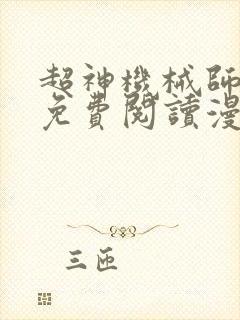 超神機械師
免費閱讀漫
三匝